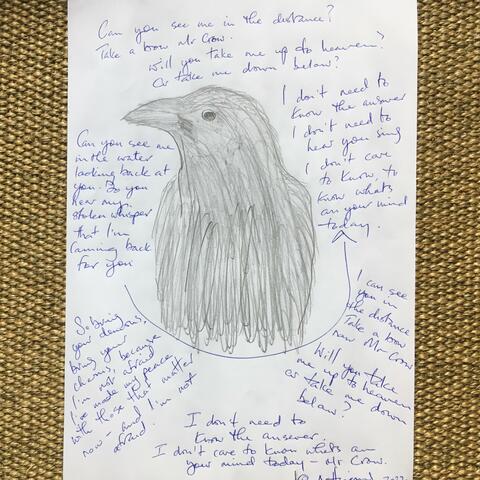 Can you see me in the distance?
Take a bow Mr Crow.
Will you take me up to heaven?
Or take me down below?
I don't need to
know the answer
I don't need to
hear you sing
I don't care
to know, to
know whats
on your mind
today.
Can you see me
in the water
looking back at
you. Do you
hear my
stolen whisper
that I'm
coming back
for you
So bring
your demons,
bring your
charms, because
I'm not afraid
I've made my peace
with those that matter
now - and I'm not
afraid.
I can see
you in
the distance
now Mr Crow
Take a bow
Will you take
me up to heaven
or take me down
below?
I don't need to
know the answer.
I don't care to know whats on
your mind today - Mr Crow.